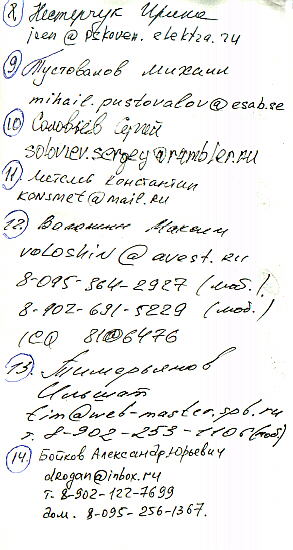 8 Нестерчук Ирина
iren@pskoven.elektra.ru
9 Пустовалов Михаил
mihail.pustovalov@esab.se
10 Соловьёв Сергей
soboviev.sergey@rambler.ru
11 Метель Константин
konsmet@mail.ru
12. Волошин Максим
voloshin@avest.ru
8-095-364-2927 (моб.).
8-902-691-5229 (моб.)
ICQ 8106476
13. Тимерьянов
Ильшат
tim@web-master.spb.ru
т. 8-902-253-1106 (моб)
14. Бойков Александр Юрьевич
drogan@inbox.ru
т. 8-902-122-7699
дом. 8-095-256-1367.